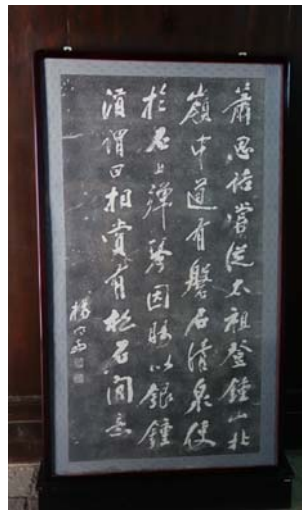 蕭思話嘗從太祖登鍾山北
嶺中道有磐石清泉使
於石上彈琴因賜以銀鍾
酒謂曰相賞有松石間意
楊守敬